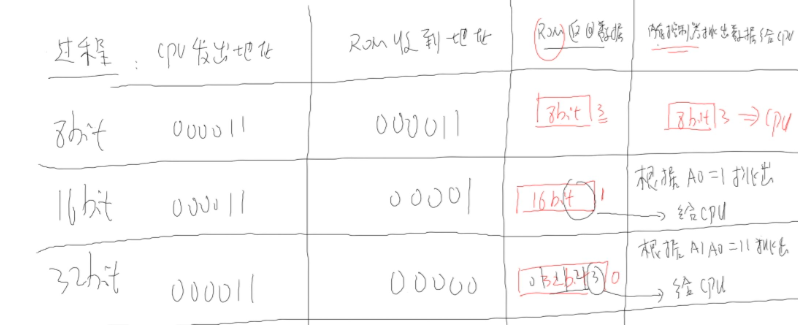 过程: CPU发出地址 ROM收到地址 ROM返回数据 内存控制器挑出数据给CPU
8bit 000011 000011 8bit 3 8bit 3 ⇒ CPU
16bit 000011 00001 16bit 1 根据A0=1挑出
→ 给CPU
32bit 000011 00000 32bit 3 0 根据A1A0=11挑出
→ 给CPU